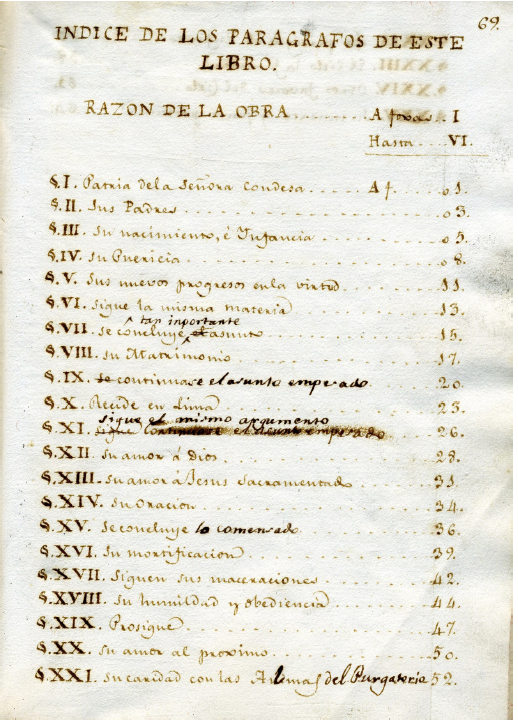 69.
INDICE DE LOS PARAGRAFOS DE ESTE
LIBRO.
RAZON DE LA OBRA A foxas.. I
Hasta.... VI.
§. I. Patria dela Señora Condesa...... A f. .... o 1.
§. II. Sus Padres .................. o 3.
§. III. Su nacimiento, é Ynfancia ........ o 5.
§. IV. Su Puericia .................. o 8.
§. V. Sus nuevos progresos enla virtud ...... 11.
§. VI. Sigue la misma materia .......... 13.
tan inportante
§. VII. Se concluye el asunto .......... 15.
§. VIII. Su Matrimonio .............. 17.
§. IX. Se continuase el asunto empesado ...... 20.
§. X. Reside en Lima .............. 23.
sigue el mismo argumento
§. XI. sigue continuase el asunto empesado .... 26.
§. XII. Su amor á Dios .............. 28.
§. XIII. Su amor á Jesus Sacramentado ...... 31.
§. XIV. Su Oracion .............. 34.
§. XV. Se concluye lo comensado ........ 36.
§. XVI. Su mortificacion .............. 39.
§. XVII. Siguen sus maceraciones ........ 42.
§. XVIII. Su humildad y obediencia ........ 44.
§. XIX. Prosigue .............. 47.
§. XX. Su amor al proximo .............. 50.
§. XXI. Su caridad con las Almas del Purgatorio 52.